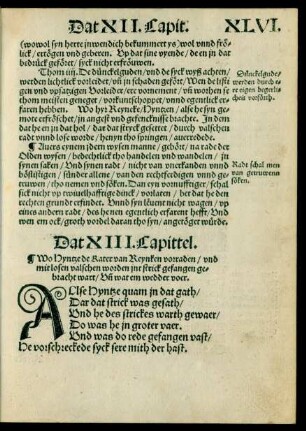 Dat XII. Capit. XLVI.
(wowol syn herte inwendich bekummert ys) wol unnd frö-
lick/ ertögen und geberen. Up dat syne vyende/ de en in dat
bedrück gesöret/ syck nicht erfröuwen.
Thom iiij. De dünckelguden/ und de syck wyß achten/
werden lichtlick vorleidet/ uñ in schaden gesöret/ Wen de listi-
gen und upsatzigen Vorleider/ etc vornemen/ uñ worhen se
thom meisten geneget/ vorkunschopper/ unnd egentlick er-
faren hebben. Wo hyr Reyneke/ Hyntzen/ alse he syn
mothe erfröschet/ in angest und gefencknisse brachte. In dem
dat he en to dat hol/ dar dat stryck gesettet/ durch valschen
radt und lose worde/ henyn tho springen/ auerredede.
¶ Auers eynem ydern wysen manne/ gehört/ na rade der
Olden wysen/ bedechtlick tho handelen und wandelen/ in
synem saken/ Und synen radt/ nicht van unerkanden unnd
höslistigen/ sünder allene/ van den rechtferdigen unnd ge-
truwen/ tho nemen und söken. Dan eyn vornufftiger/ schal
sick nicht up twiuelhafftige dinck/ vorlaten/ der dat he den
rechten grundt erfindet. Unnd syn leuent nicht wagen/ up
eines andern radt/ des henen egentlich erfaren hefft/ Und
wen em ock/ groth vordel daran tho syn/ angetöget würde.
Dünckelgude/
werden durch er
er eigen begerli-
chen vorsörth.
Radt schal men
van getruwenn
söken.
Dat XIII. Capittel.
¶ Wo Hyntze de Kater van Reynken vorraden/ vnd
mit losen valschen worden int strick gefangen ge-
bracht wart/ Uñ wat em wedder voer.
Alse Hyntze quam in dat gath/
Dar dat strick was gesath/
Und he des strickes warth gewaer/
Do was he in groter vaer.
Und was do rede gefangen vast/
He vorschreckede syck sere mith der hast.